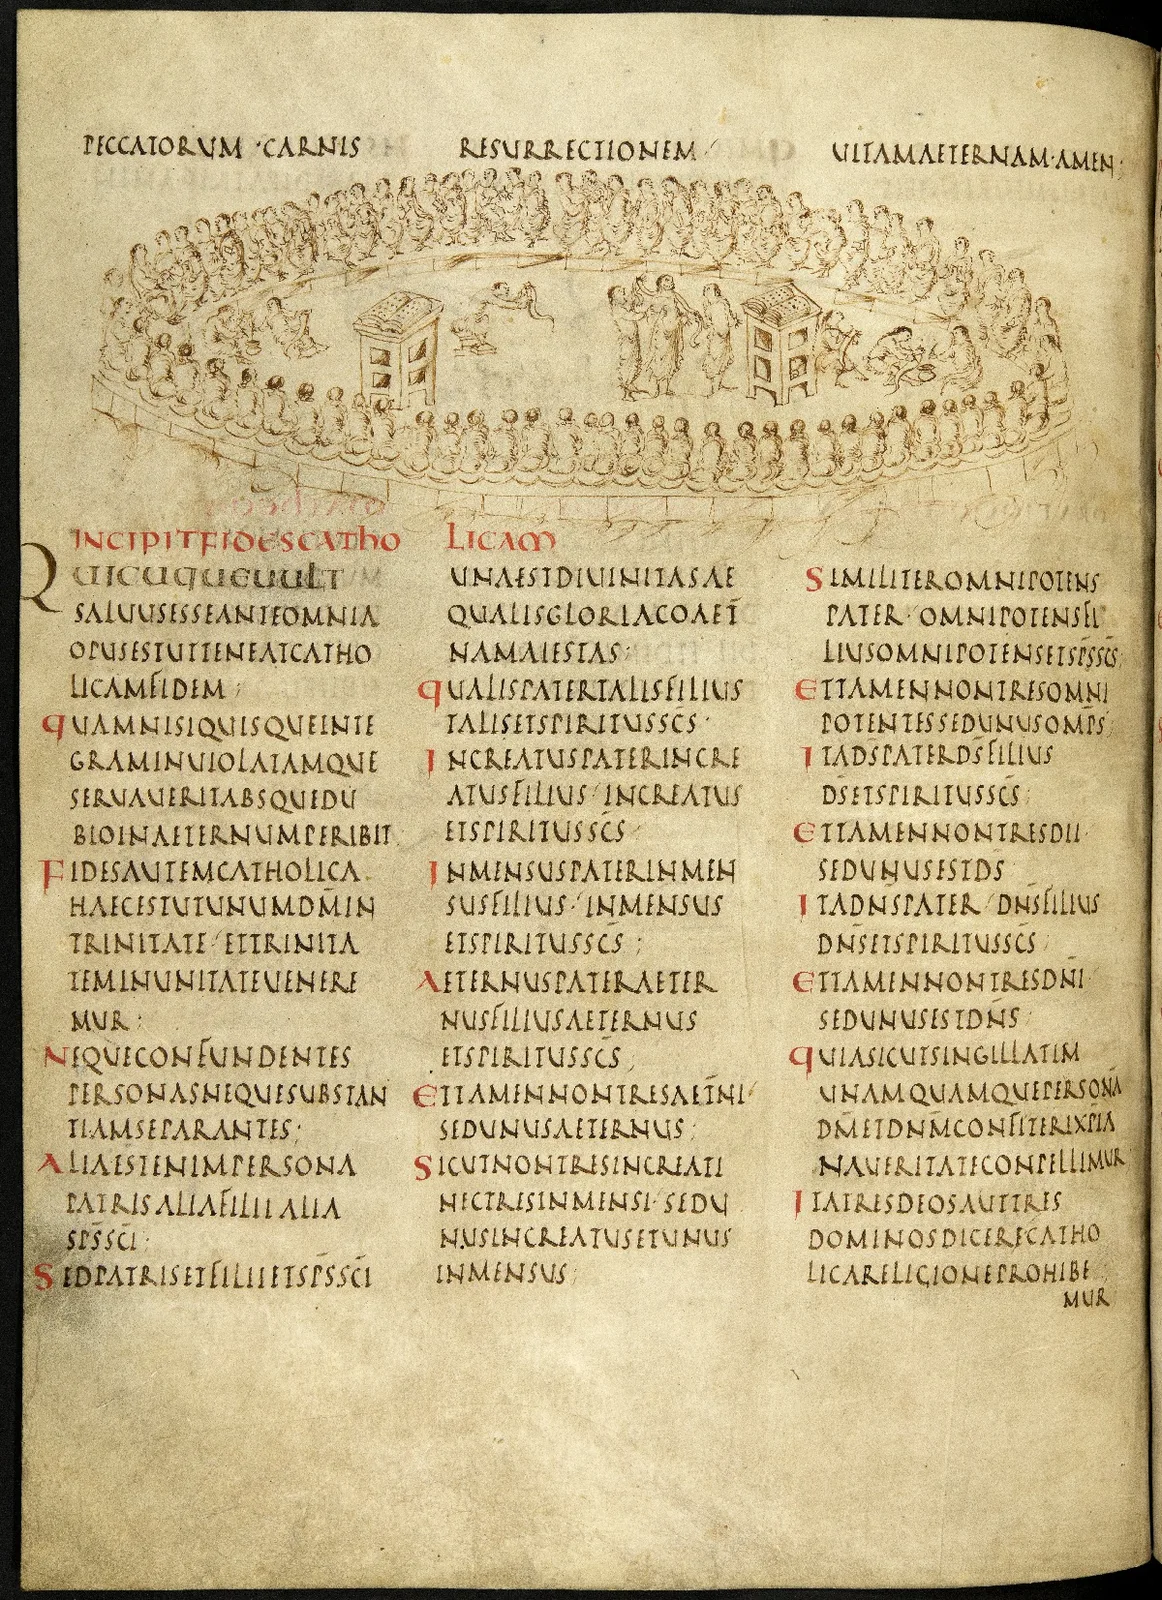 PECCATORUM · CARNIS RESURRECTIONEM UITAMAETERNAM·AMEN;
INCIPITFIDESCATHO LICAM
QUICUQUEUULT
SALUUSESSEANTEOMNIA
OPUSESTUTTENEATCATHO
LICAMFIDEM;
QUAMNISIQUISQUEINTE
GRAMINUIOLATAMQUE
SERUAUERITABSQUEDU
BIOINAETERNUMPERIBIT
FIDESAUTEMCATHOLICA
HAECESTUTUNUMDM̄IN
TRINITATE·ETTRINITA
TEMINUNITATEUENERE
MUR;
NEQUECONFUNDENTES
PERSONASNEQUESUBSTAN
TIAMSEPARANTES;
ALIAESTENIMPERSONA
PATRISALIAFILIIALIA
SP̄SSC̄I·
SEDPATRISETFILIIETSP̄SSC̄I
UNAESTDIUINITASAE
QUALISGLORIACOAET̄
NAMAIESTAS·
QUALISPATERTALISFILIUS
TALISETSPIRITUSSC̄S·
INCREATUSPATERINCRE
ATUSFILIUS·INCREATUS
ETSPIRITUSSC̄S;
INMENSUSPATERINMEN
SUSFILIUS·INMENSUS
ETSPIRITUSSC̄S;
AETERNUSPATERAETER
NUSFILIUSAETERNUS
ETSPIRITUSSC̄S;
ETTAMENNONTRESAET̄NI·
SEDUNUSAETERNUS;
SICUTNONTRESINCREATI
NECTRESINMENSI·SEDU
NUSINCREATUSETUNUS
INMENSUS;
SIMILITEROMNIPOTENS
PATER·OMNIPOTENSFI
LIUSOMNIPOTENSETSP̄SSC̄S;
ETTAMENNONTRESOMNI
POTENTESSEDUNUSOMP̄S·
ITADS̄PATERDS̄FILIUS
DS̄ETSPIRITUSSC̄S;
ETTAMENNONTRESDII·
SEDUNUSESTDS̄
ITADN̄SPATER·DN̄SFILIUS
DN̄SETSPIRITUSSC̄S·
ETTAMENNONTRESDN̄I·
SEDUNUSESTDN̄S·
QUIASICUTSINGILLATIM
UNAMQUAMQUEPERSONĀ
DM̄ETDN̄MCONFITERIXPIA
NAUERITATECONPELLIMUR
ITATRESDEOSAUTTRES
DOMINOSDICERECATHO
LICARELIGIONEPROHIBE
MUR